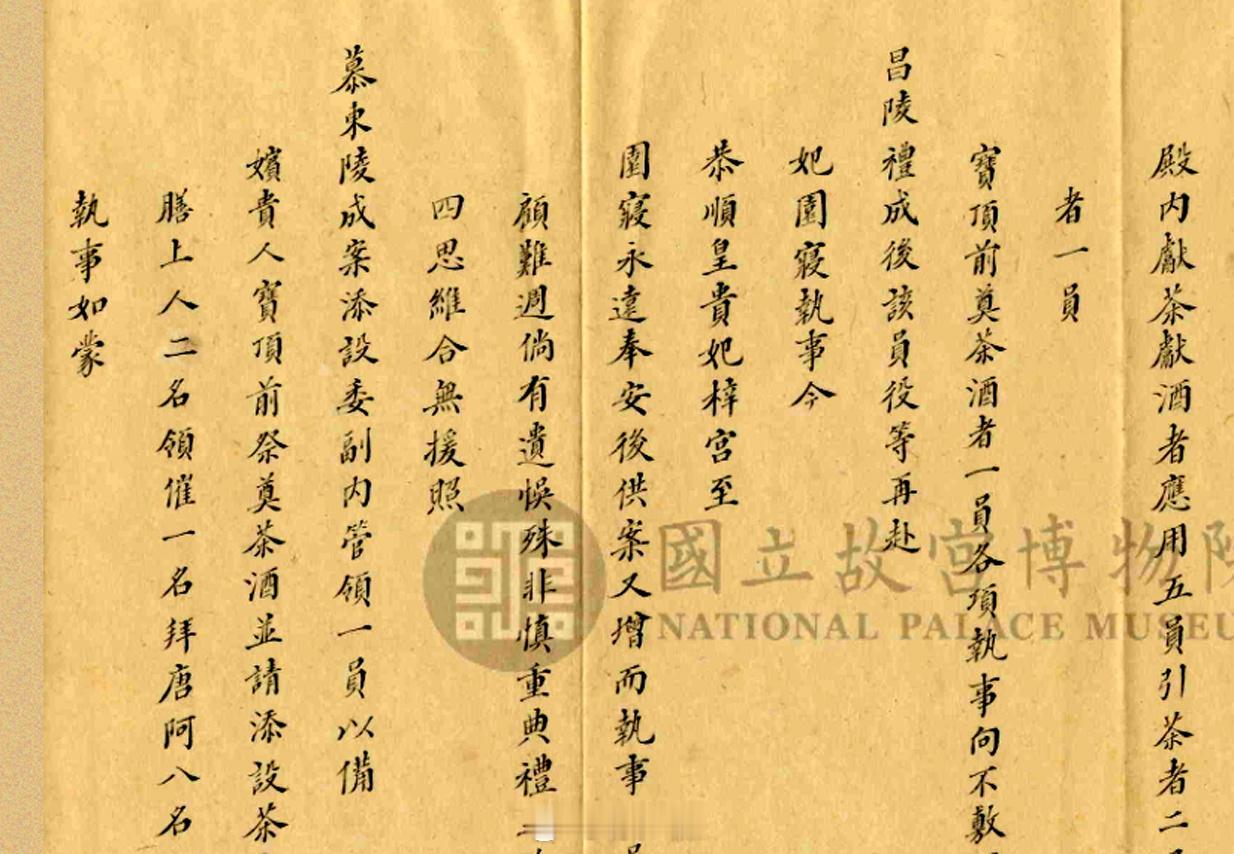 殿内獻茶獻酒者應用五員引茶者二
者一員
寳頂前奠茶酒者一員各項執事向不敷
昌陵禮成後該員役等再赴
妃園寢執事今
恭順皇貴妃梓宫至
園寢永遠奉安後供案又增而執事
顧難週倘有遺悮殊非慎重典禮
四思維合無援照
慕東陵成案添設委副内管領一員以備
嬪貴人寳頂前祭奠茶酒並請添設茶
膳上人二名領催一名拜唐阿八名
執事如蒙
國立故宮博物院
NATIONAL PALACE MUSEU